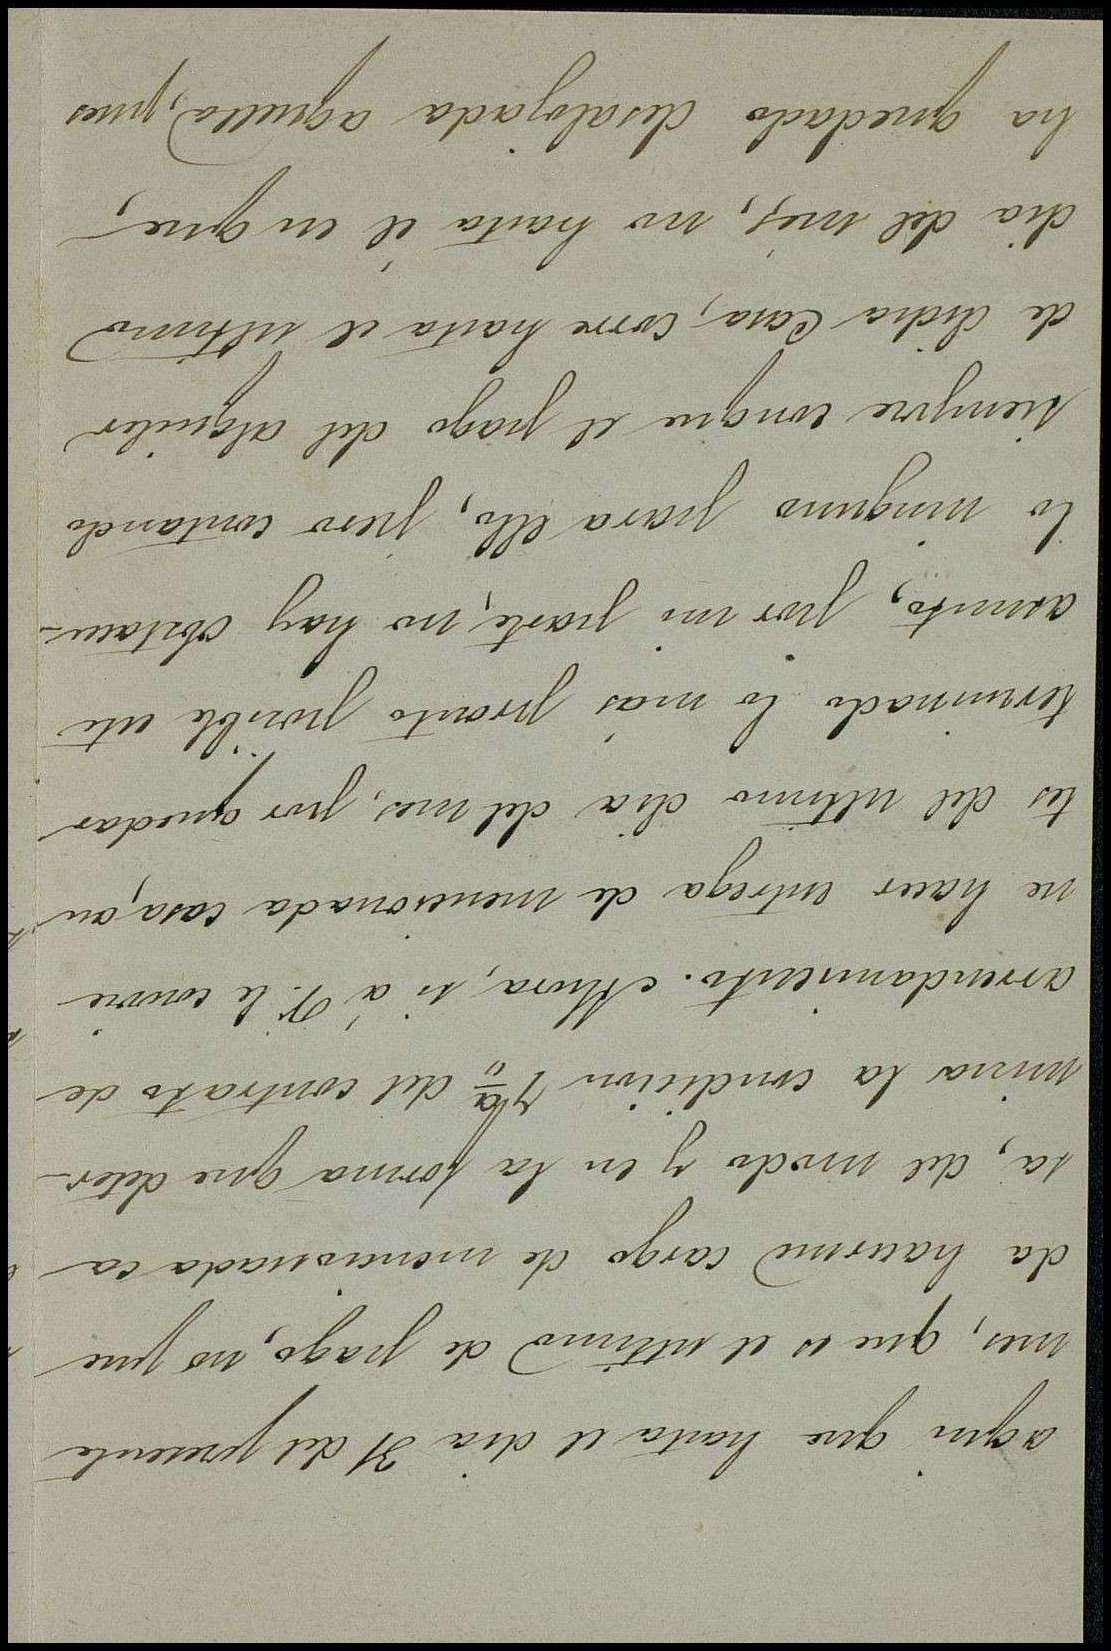 aqui que hasta el dia 31 del presente
mes, que es el ultimo de pago, no pue
da hacerme cargo de mencionada ca
sa, del modo y en la forma que deter-
mina la condicion 7ª del contrato de
arrendamiento. Ahora, si á V. le convie
ne hacer entrega de mencionada casa, an
tes del ultimo dia del mes, por quedar
terminado lo más pronto posible este
asunto, por mi parte, no hay obstacu-
lo ninguno para ello, pero contando
siempre conque el pago del alquiler
de dicha Casa, corre hasta el ultimo
dia del mes, no hasta él en que,
ha quedado desalojada aquella, pues